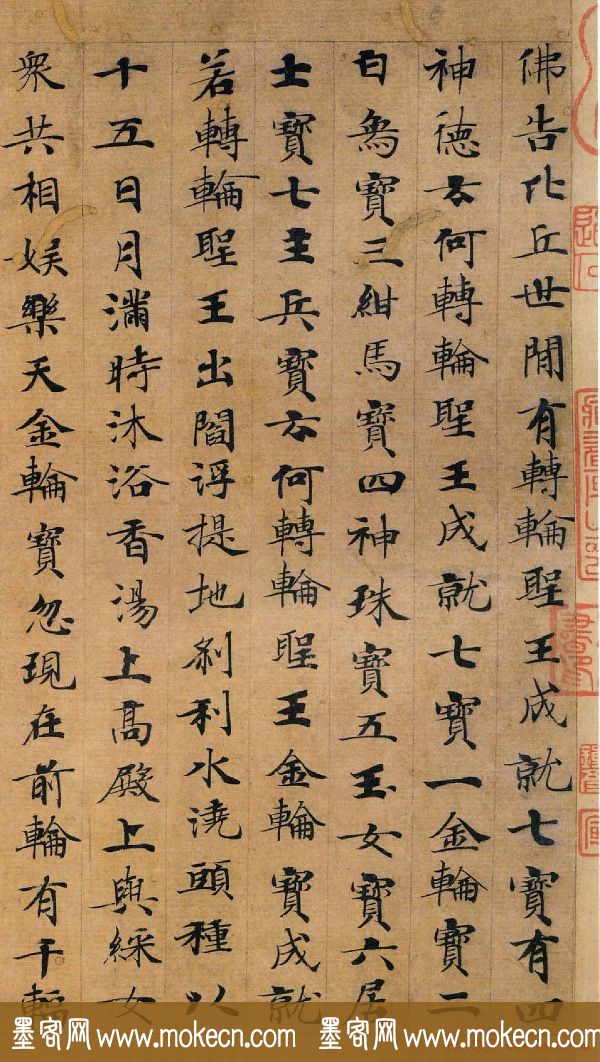 佛告比丘世間有轉輪聖王成就七寶有四
神德云何轉輪聖王成就七寶一金輪寶二
白象寶三紺馬寶四神珠寶五玉女寶六居
士寶七主兵寶云何轉輪聖王金輪寶成就
若轉輪聖王出閻浮提地剎利水澆頭種以
十五日月滿時沐浴香湯上高殿上與綵女
衆共相娛樂天金輪寶忽現在前輪有千輻
墨客网 www.mokecn.com 墨客网 www.mokecn.com